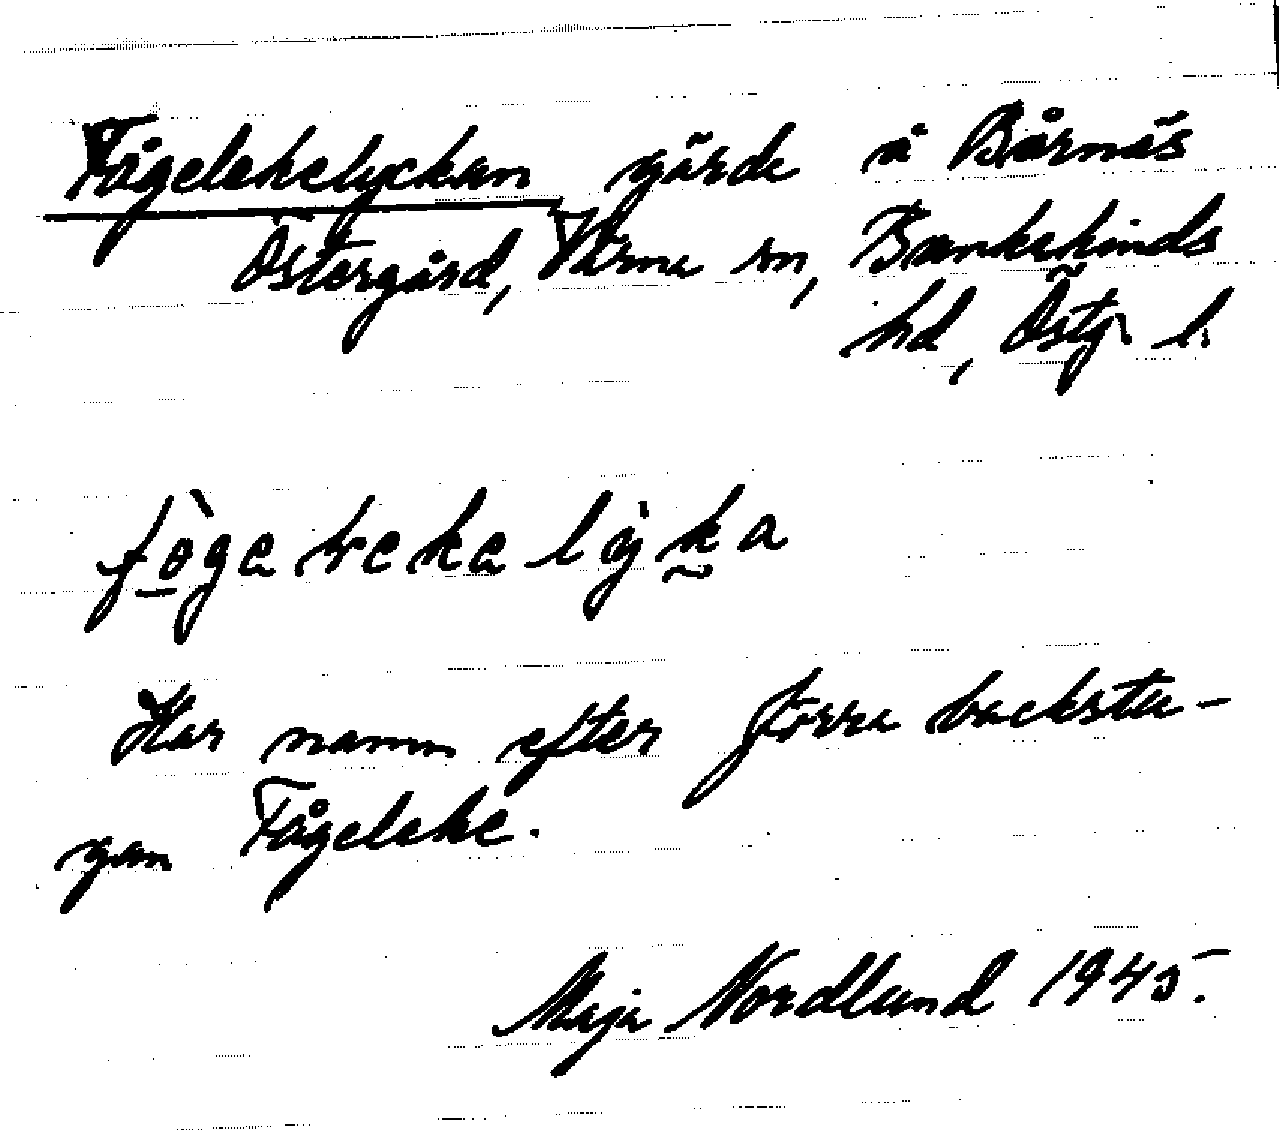 Fågelekelyckan gärde å Bårnäs
Östergård, Värna sn, Bankekinds
hd, Östg. l.
Har namn efter förra backstu-
gan Fågeleke.
Maja Nordlund 1945.